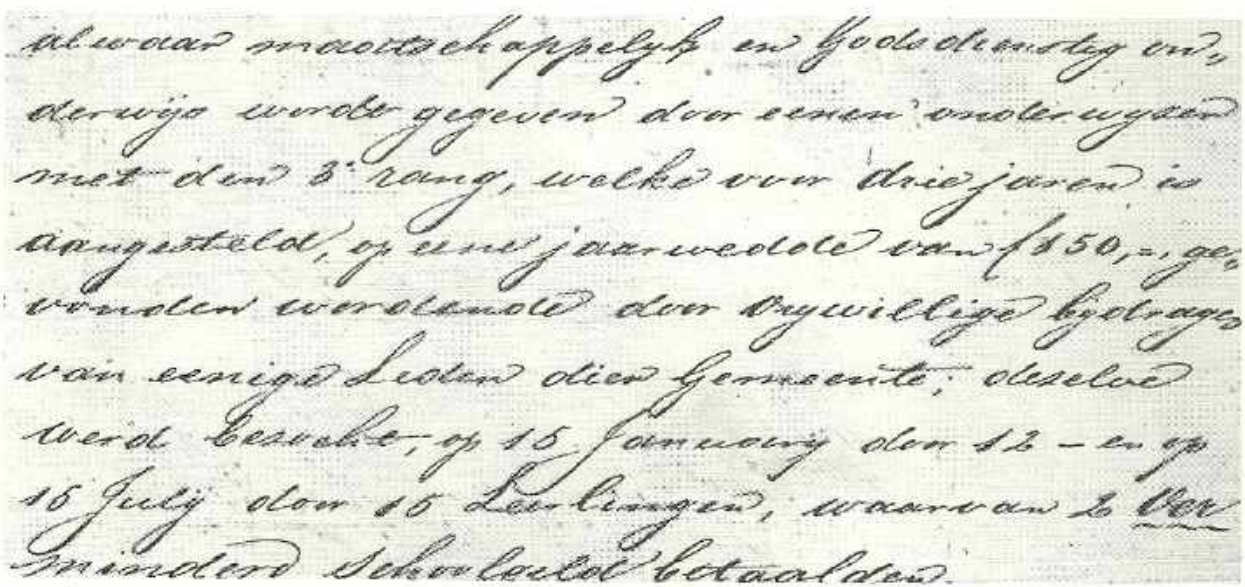 alwaar maatschappelyk en Godsdienstig on„
derwijs wordt gegeven door eenen onderwyzer
met den 3e rang, welke voor drie jaren is
aangesteld, op eene jaarwedde van f 150,=, ge„
vonden wordende door vrywillige bydragen
van eenige Leden dier Gemeente; dezelve
werd bezocht, op 15 January door 12 – en op
15 July door 15 Leerlingen, waarvan 2 Ver
minderd schoolgeld betaalden.